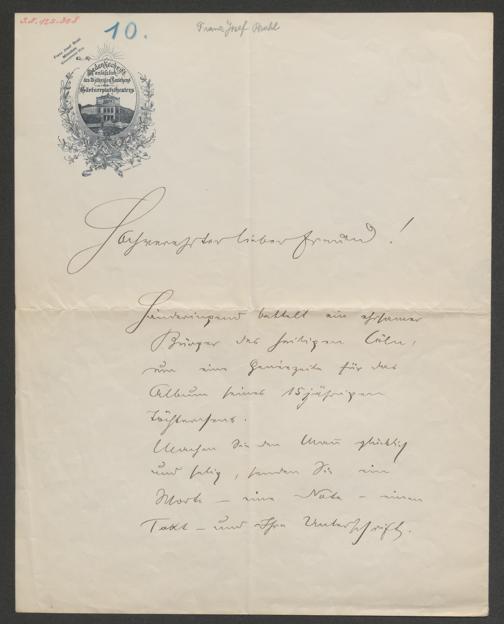 10.
Franz Josef Brakl
Gedenkschrift
Gärtnerplatztheaters
Hochverehrter lieber Freund!
Händeringend bettelt ein ehrsamer
Bürger des heiligen Cöln,
um eine Geniezeile für das
Album seines 15jährigen
Töchterchens.
Machen Sie den Mann glücklich
und selig, senden Sie ein
Wort – eine Note – einen
Takt – und Ihre Unterschrift.